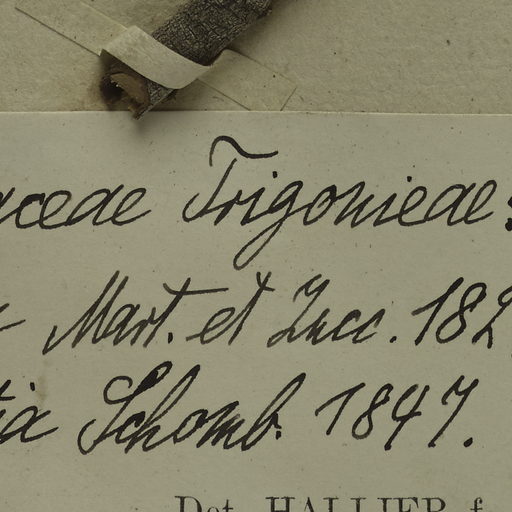 aceae Trigonieae:
Mart. et Zucc. 182
ia Schomb. 1847.
Det. HALLIER f.